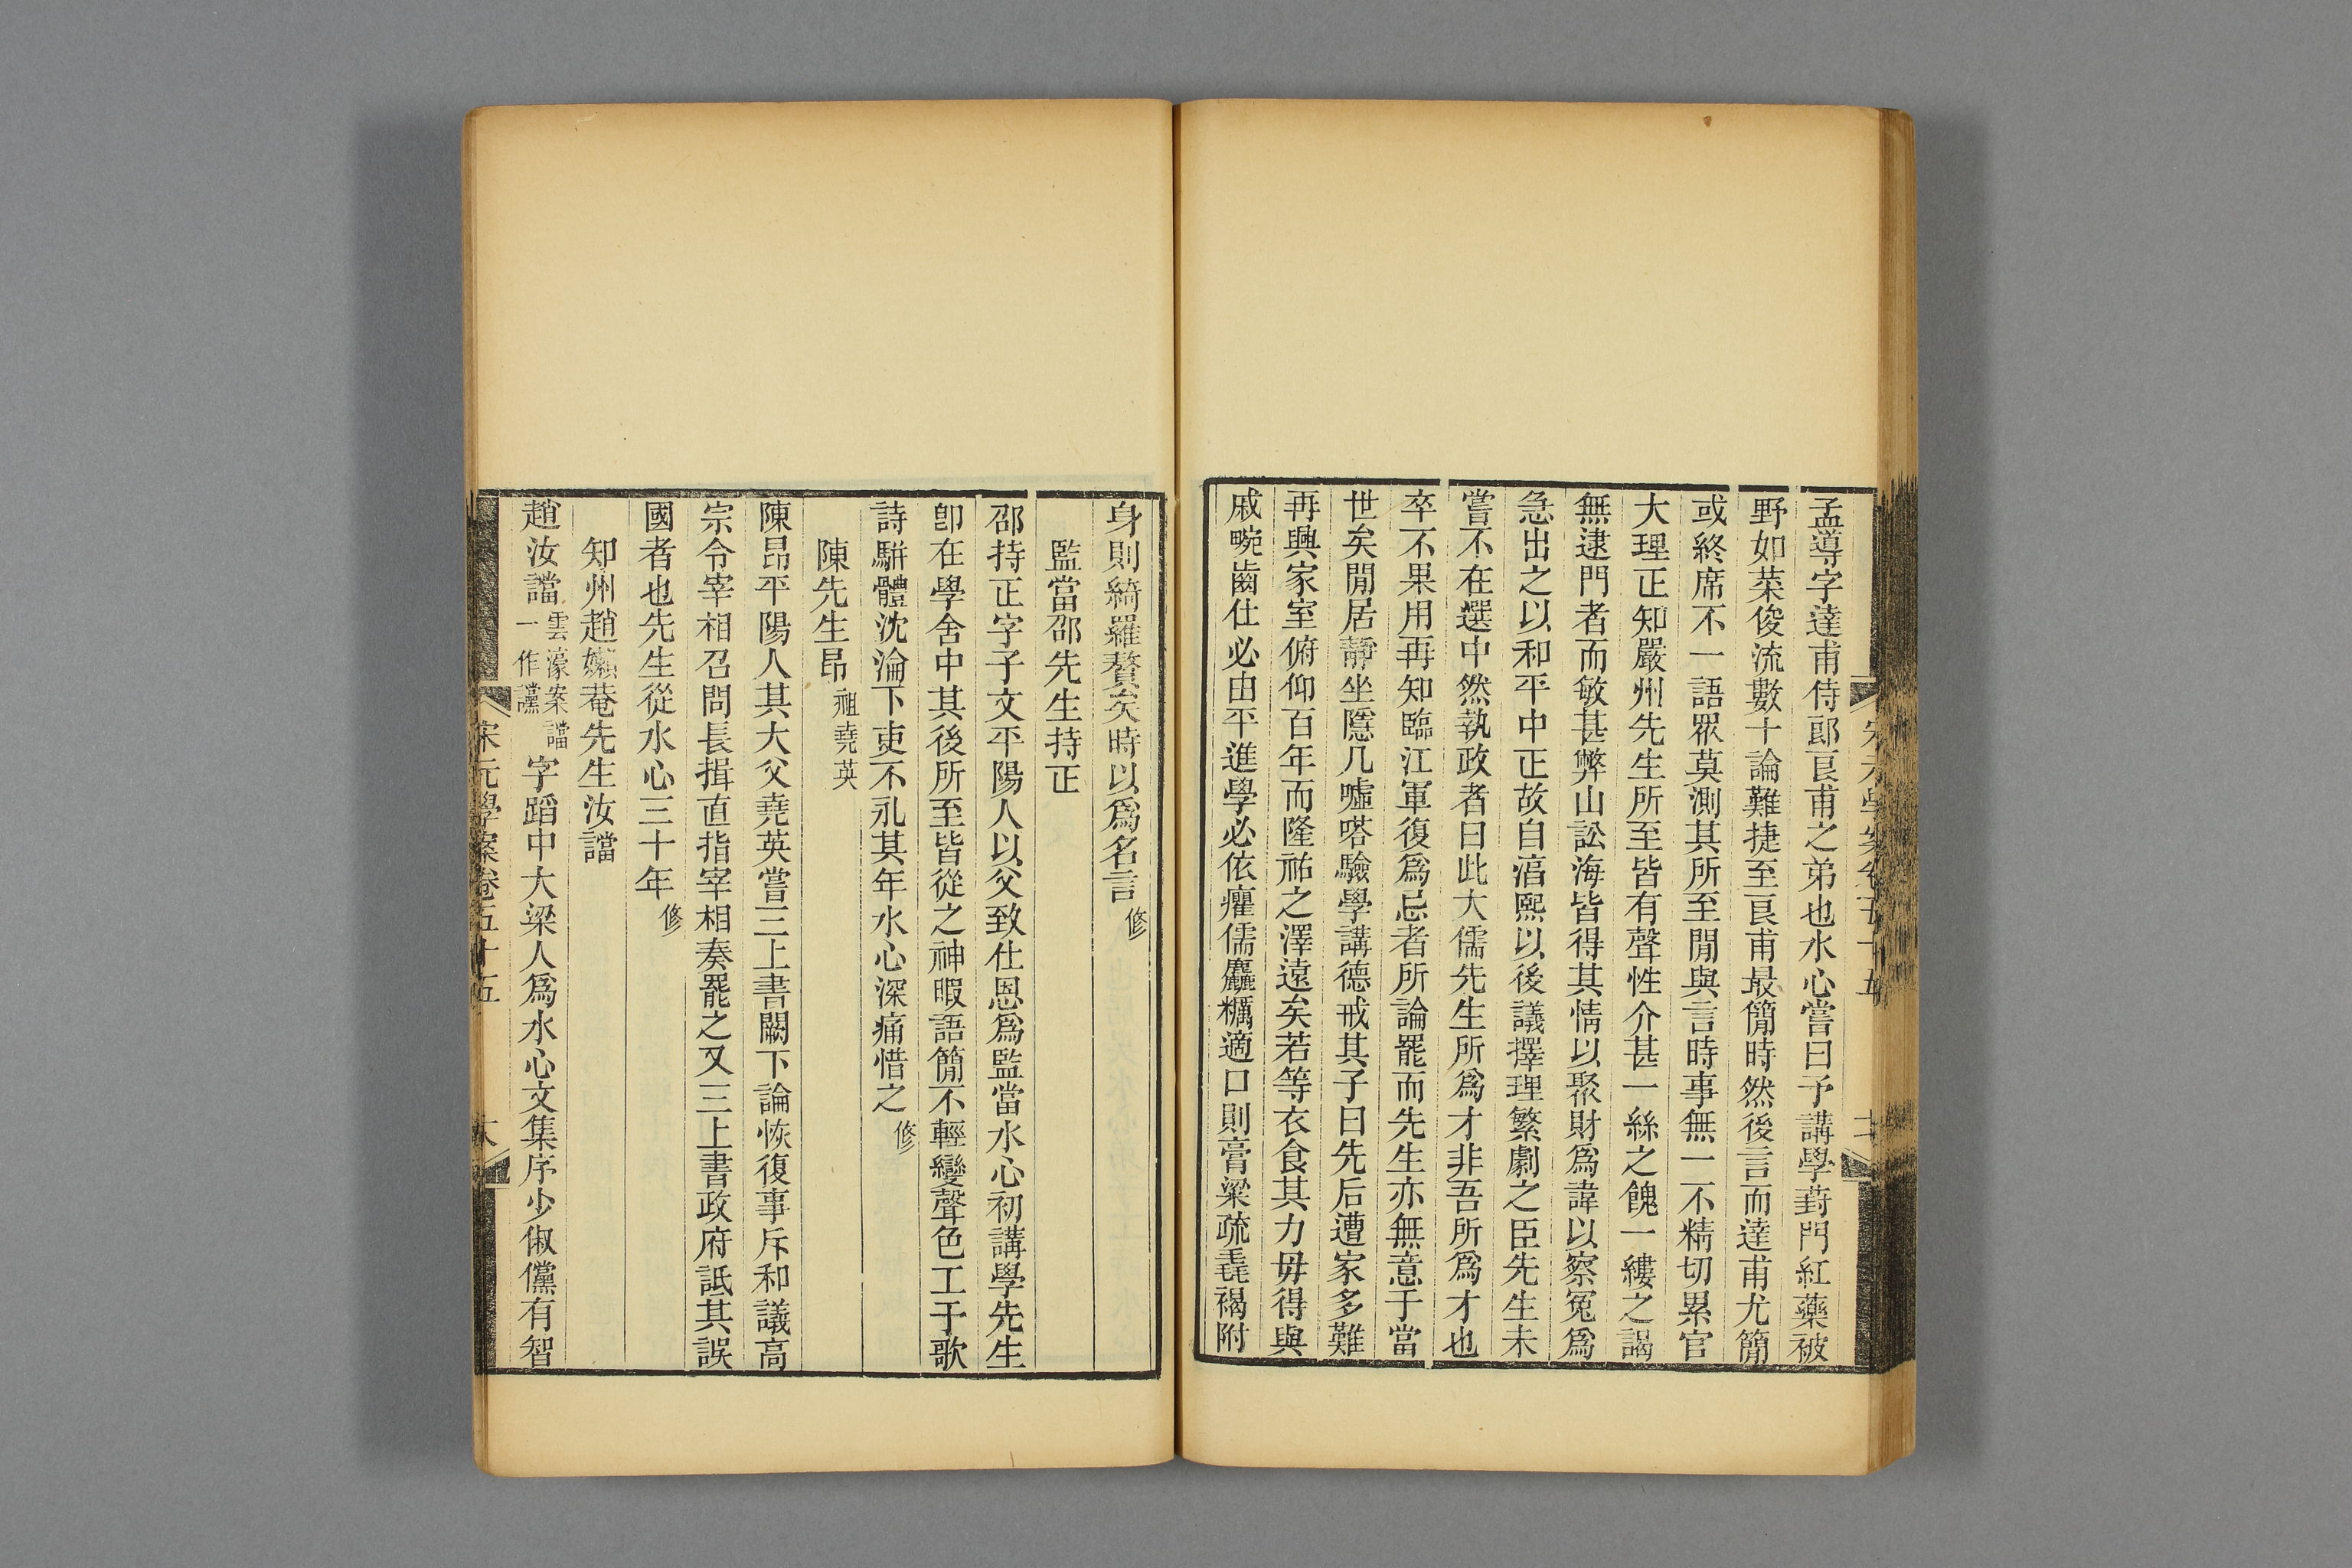 孟導字達甫侍郎良甫之弟也水心嘗曰予講學葑門紅藥被
野如菜俊流數十論難捷至良甫最簡時然後言而達甫尤簡
或終席不一語眾莫測其所至閒與言時事無一不精切累官
大理正知嚴州先生所至皆有聲性介甚一絲之餽一縷之謁
無逮門者而敏甚弊山訟海皆得其情以聚財爲諱以察冤爲
急出之以和平中正故自湻熙以後議擇理繁劇之臣先生未
嘗不在選中然執政者曰此大儒先生所爲才非吾所爲才也
卒不果用再知臨江軍復爲忌者所論罷而先生亦無意于當
世矣閒居靜坐隱几噓嗒驗學講德戒其子曰先后遭家多難
再興家室俯仰百年而隆祐之澤遠矣若等衣食其力毋得與
戚畹齒仕必由平進學必依癯儒麤糲適口則膏粱疏毳褐附
身則綺羅贅矣時以爲名言修
監當邵先生持正
邵持正字子文平陽人以父致仕恩爲監當水心初講學先生
卽在學舍中其後所至皆從之神暇語簡不輕變聲色工于歌
詩駢體沈淪下吏不永其年水心深痛惜之修
陳先生昂祖堯英
陳昂平陽人其大父堯英嘗三上書闕下論恢復事斥和議高
宗令宰相召問長揖直指宰相奏罷之又三上書政府詆其誤
國者也先生從水心三十年修
知州趙嬾菴先生汝譡
趙汝譡雲濠案譡一作讜字蹈中大梁人爲水心文集序少俶儻有智
宋元學案卷五十五